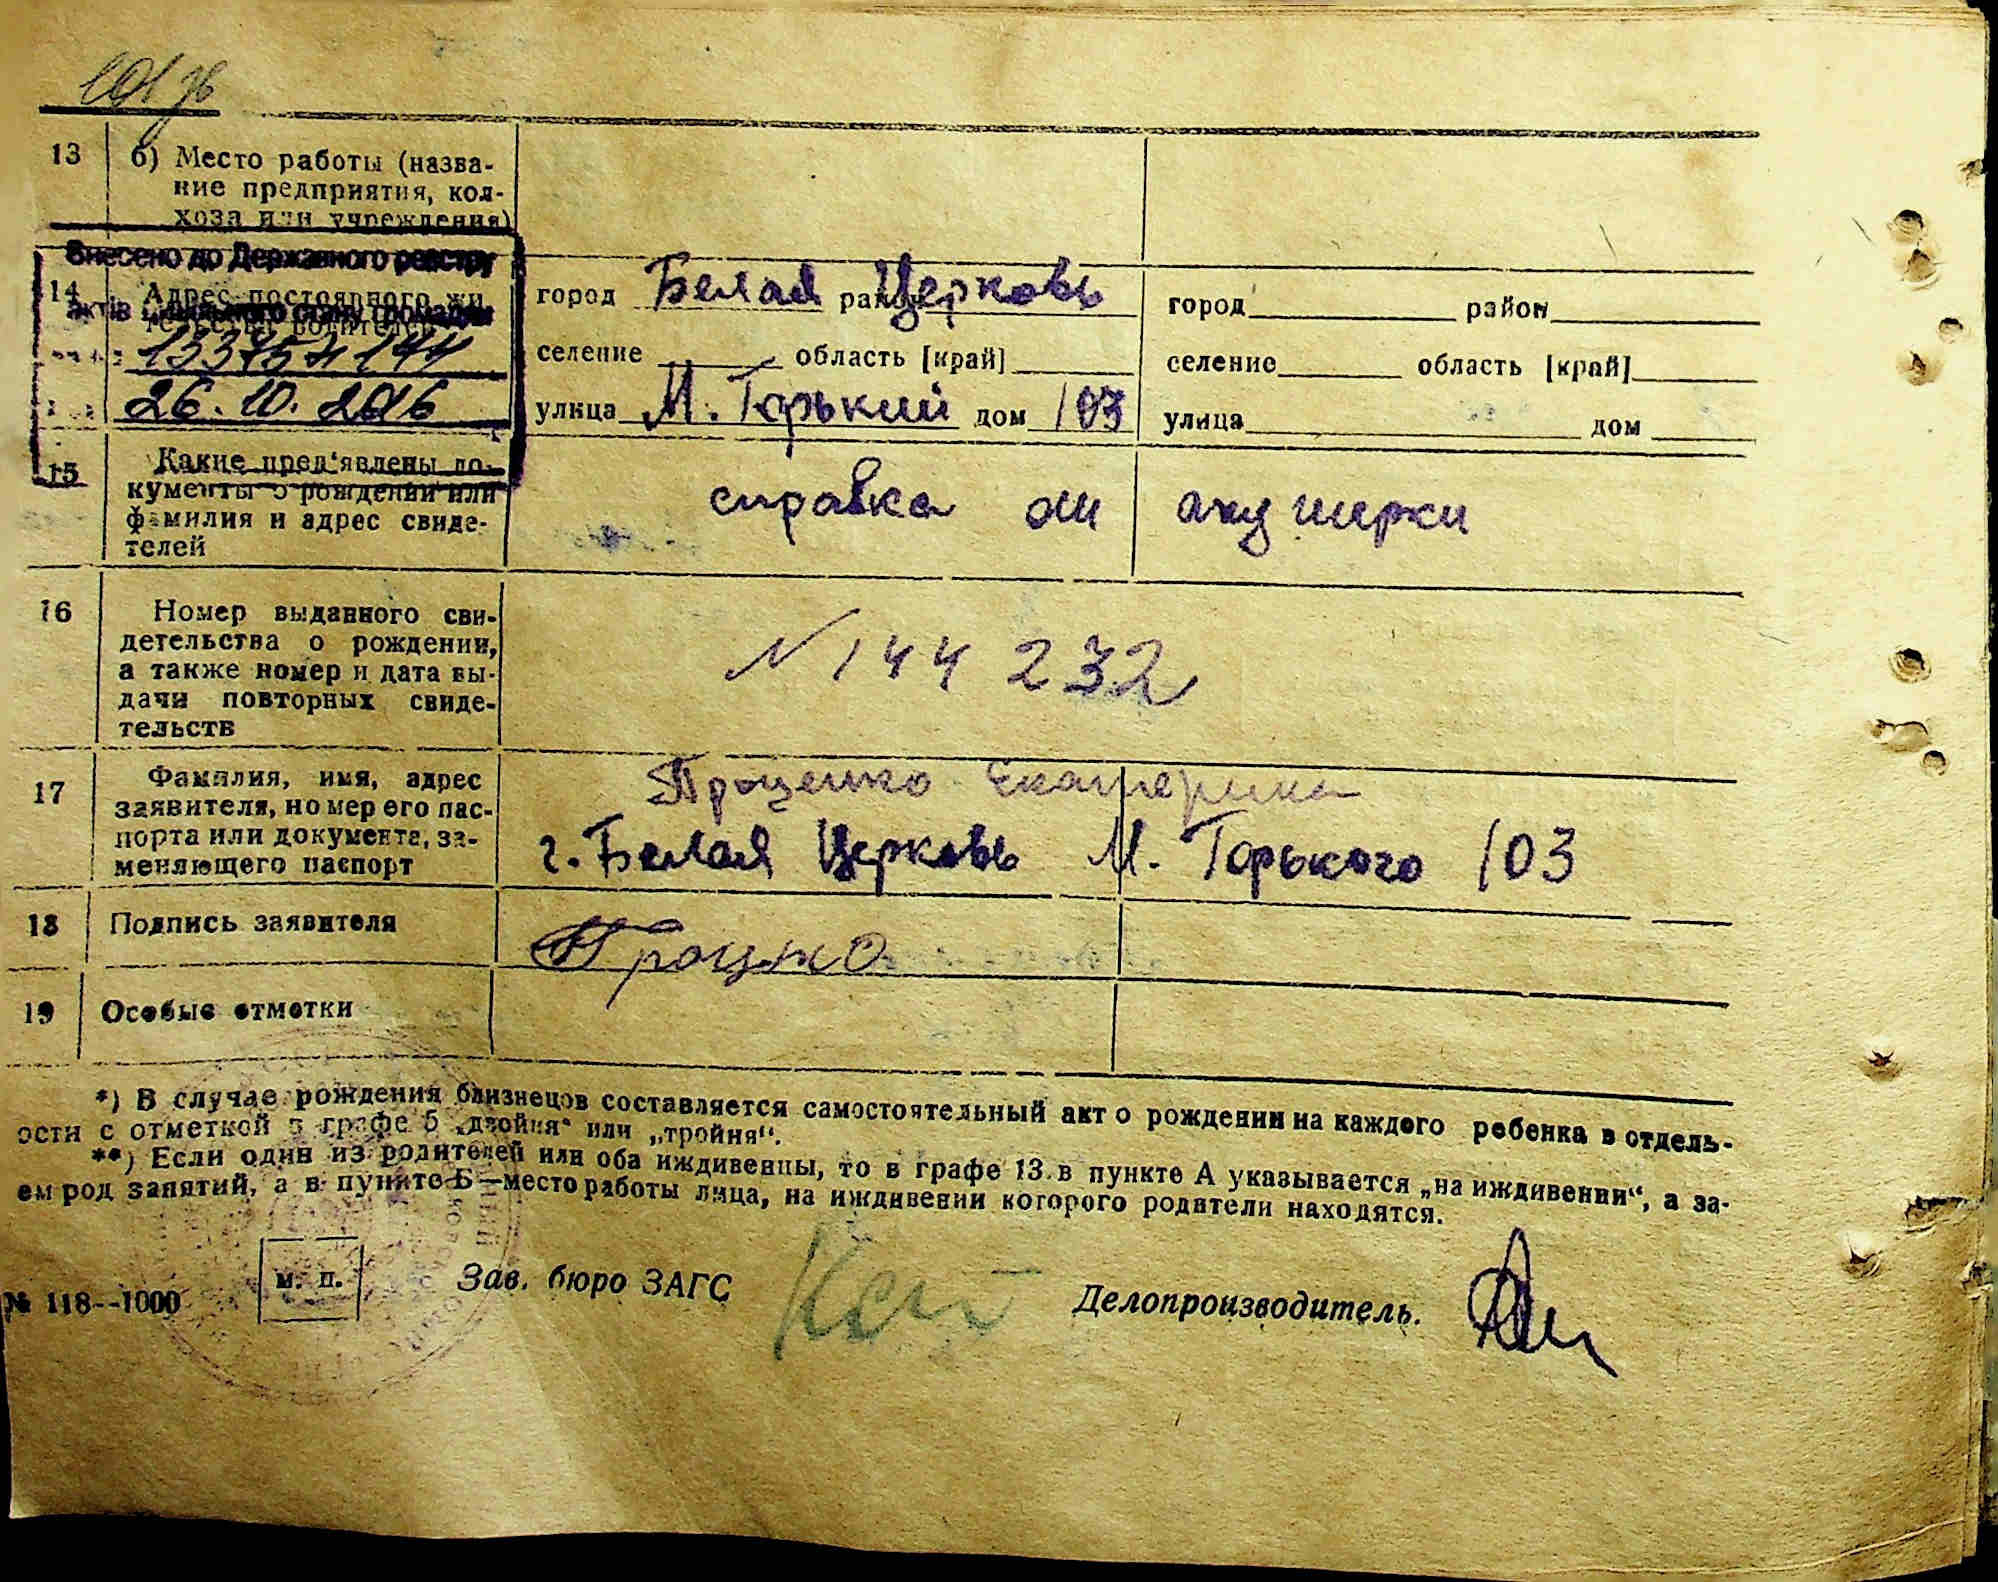 13 б) Место работы (назва-
ние предприятия, кол-
хоза или учреждения)
Внесено до Державного реєстру
актів цивільного стану громадян
26.10.2016
14 Адрес постоянного жи
тельства родителей
город Белая район Церковь
селение область [край]
улица М. Горький дом 103
город район
селение область [край]
улица дом
15 Какие пред'явлены до-
кументы о рождении или
фамилия и адрес свиде-
телей
справка от акушерки
16 Номер выданного сви-
детельства о рождении,
а также номер и дата вы-
дачи повторных свиде-
тельств
N 144232
17 Фамилия, имя, адрес
заявителя, номер его пас-
порта или документа, за-
меняющего паспорт
Проценко Екатерина
г. Белая Церковь М. Горького 103
18 Подпись заявителя
19 Особые отметки
*) В случае рождения близнецов составляется самостоятельный акт о рождении на каждого ребенка в отдель-
ости с отметкой в графе 5 „двойня“ или „тройня“.
**) Если один из родителей или оба иждивенцы, то в графе 13 в пункте А указывается „на иждивении“, а за-
ем род занятий, а в пункте Б—место работы лица, на иждивении которого родители находятся.
м. п.
Зав. бюро ЗАГС
Делопроизводитель.
№ 118--1000